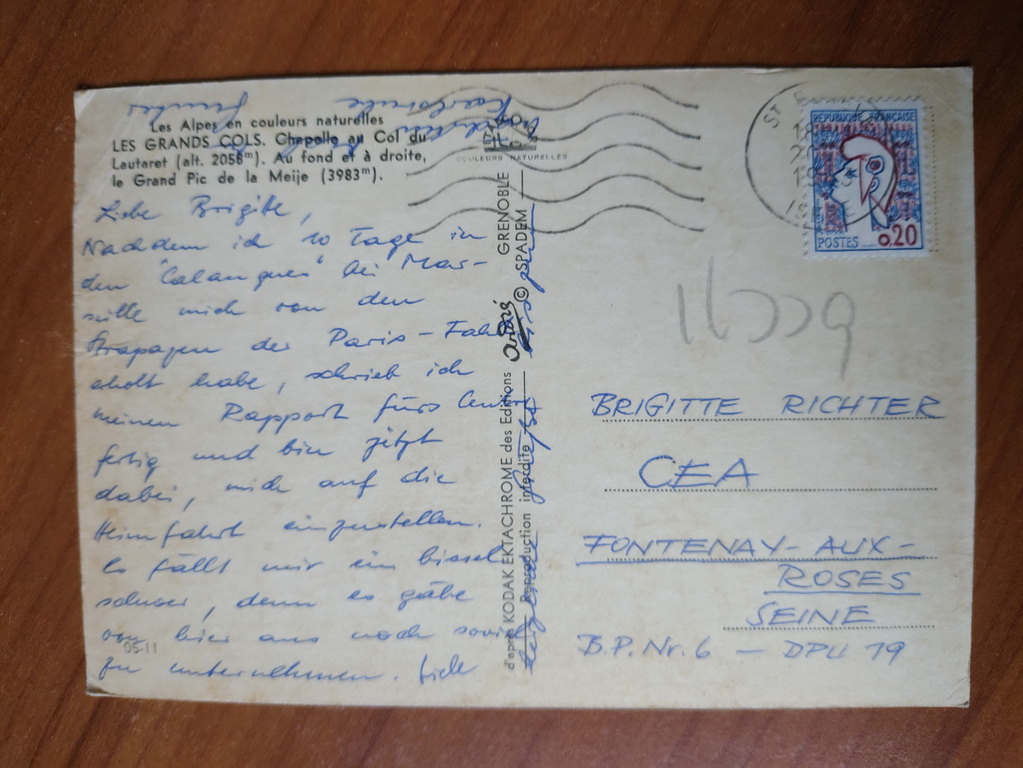 Les Alpes en couleurs naturelles
LES GRANDS COLS. Chapelle au Col du
Lautaret (alt. 2058m). Au fond et à droite,
le Grand Pic de la Meije (3983m).
Liebe Brigitte,
Nachdem ich 10 Tage in
den "Calanques" bei Mar-
seille mich von den
Strapazen der Paris-Fahrt
erholt habe, schrieb ich
meinen Rapport fürs Centre
fertig und bin jetzt
dabei, mich auf die
Heimfahrt einzustellen.
Es fällt mir ein bissel
schwer, denn es gäbe
von hier aus noch soviel
zu unternehmen.
05-11
d'après KODAK EKTACHROME des Editions GRENOBLE
Reproduction interdite © SPADEM
COULEURS NATURELLES
Karlsruhe
REPUBLIQUE FRANÇAISE
POSTES 0,20
ST
BRIGITTE RICHTER
CEA
FONTENAY-AUX-
ROSES
SEINE
B.P. Nr. 6 — DPU 19